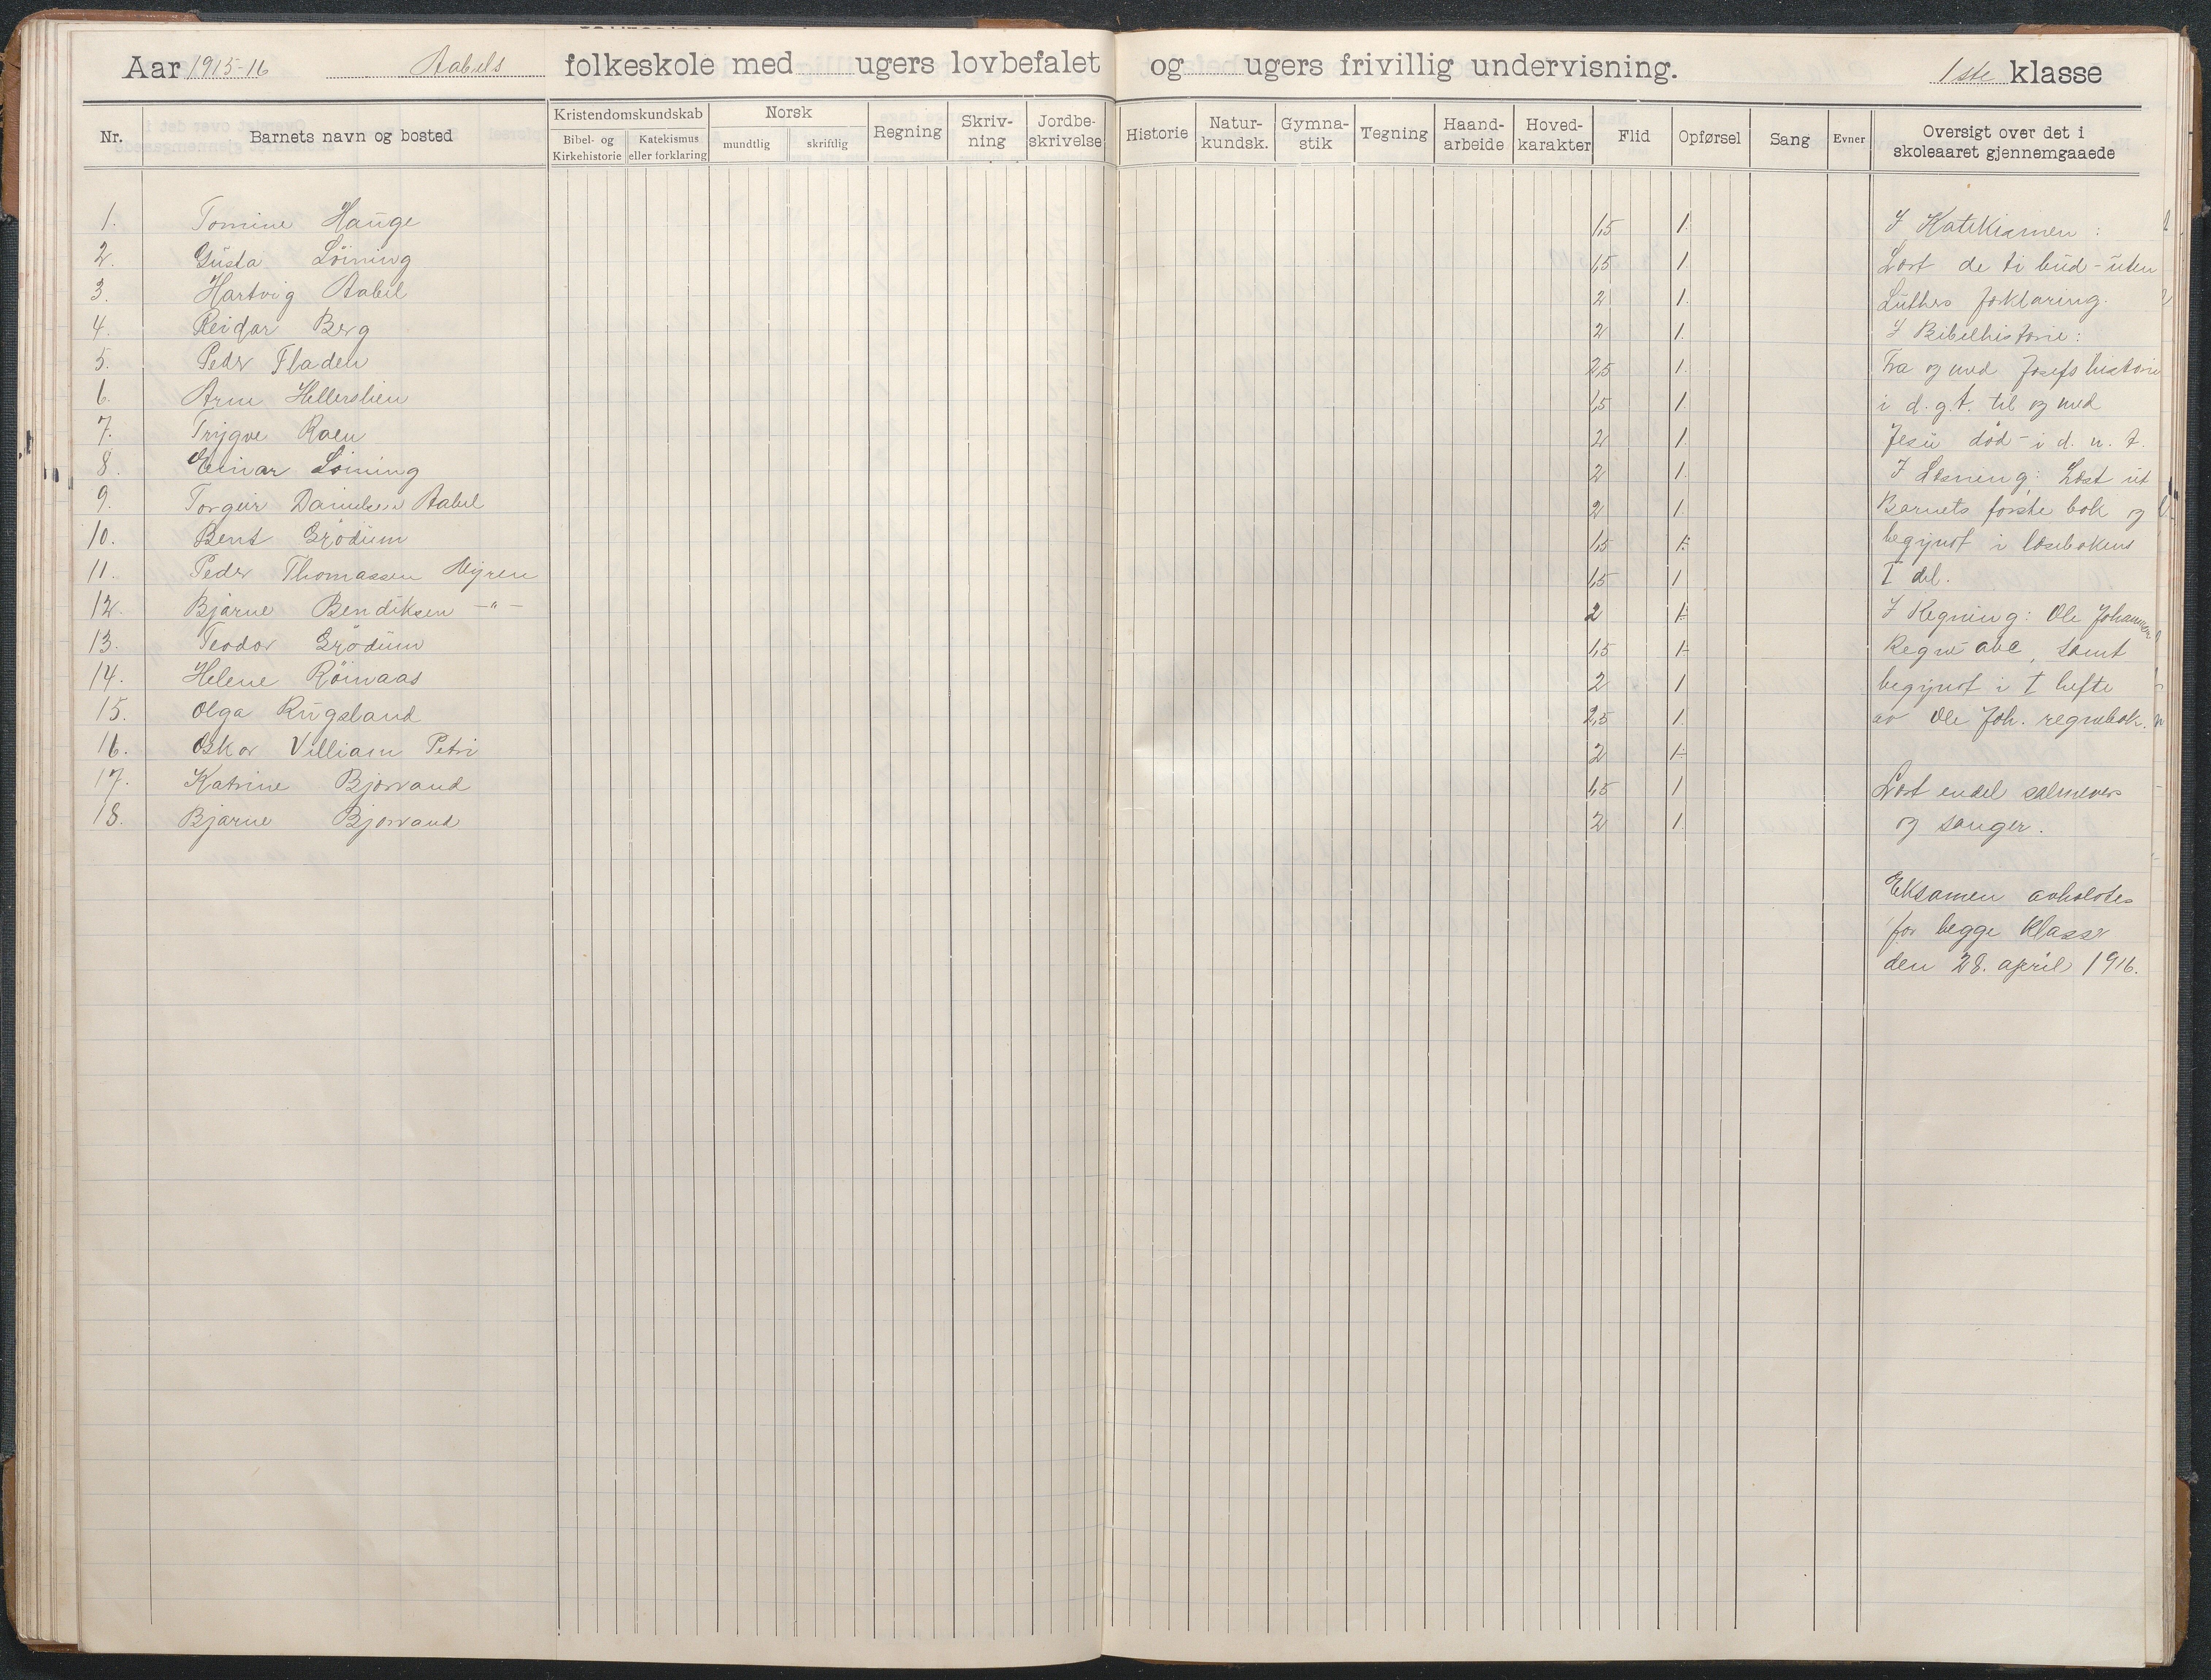 Aar 1915-16 Aabels folkeskole med ugers lovbefalet og ugers frivillig undervisning. 1ste klasse
Nr. Barnets navn og bosted Kristendomskundskab Bibel- og Kirkehistorie Katekismus eller forklaring Norsk mundtlig skriftlig Regning Skriv-ning Jordbe-skrivelse Historie Natur-kundsk. Gymna-stik Tegning Haand-arbeide Hoved-karakter Flid Opførsel Sang Evner Oversigt over det i skoleaaret gjennemgaaede
1. Tomine Hauge 1,5 1.
2. Gusta Löining 1,5 1.
3. Hartvig Aabel 2 1.
4. Reidar Berg 2 1.
5. Peder Fladen 2,5 1.
6. Arne Hellerslien 1,5 1.
7. Trygve Roen 2 1.
8. Einar Löining 2 1.
9. Torgeir Danielsen Aabel 2 1.
10. Bent Grödum 1,5 1.
11. Peder Thomassen Myren 1,5 1
12. Bjarne Bendiksen -"- 2 1.
13. Teodor Grödum 1,5 1.
14. Helene Röinaas 2 1
15. Olga Rugsland 2,5 1.
16. Oskar Villiam Petri 2 1.
17. Katrine Bjorvand 1,5 1
18. Bjarne Bjorvand 2 1.
I Katekismen :
Lært de ti bud - uten
Luthes forklaring.
I Bibelhistorie :
Fra og med Josefs historie
i d. g. t. til og med
Jesu død - i d. n. t.
I Læsning : Læst ut
Barnets første bok og
begynt i læsebokens
I del.
I Regning : Ole Johannesens
Regne abc, samt
begynt i I hefte
av Ole Joh. regnebok.
Lært endel salmevers
og sanger.
Eksamen avholdtes
for begge klasser
den 28. april 1916.